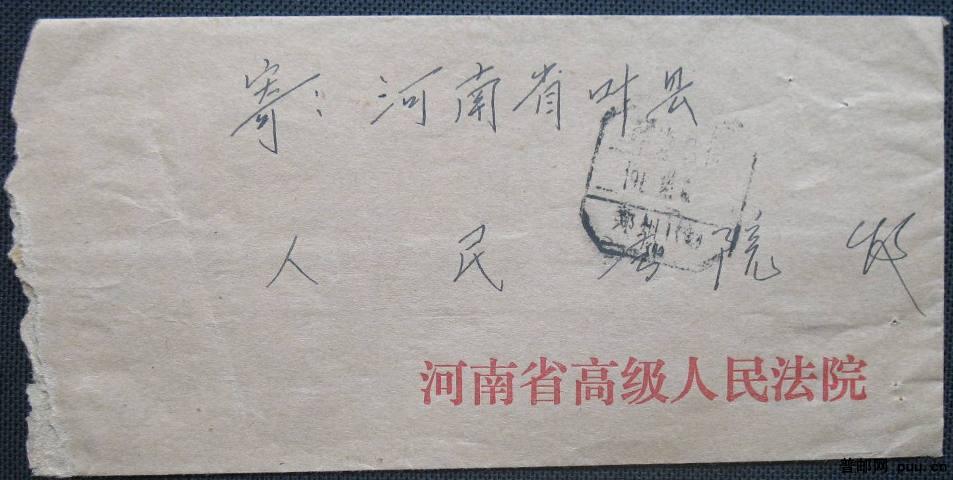 寄：河南省叶县
郑州
人民法院 收
河南省高级人民法院
普邮网 puu.cn